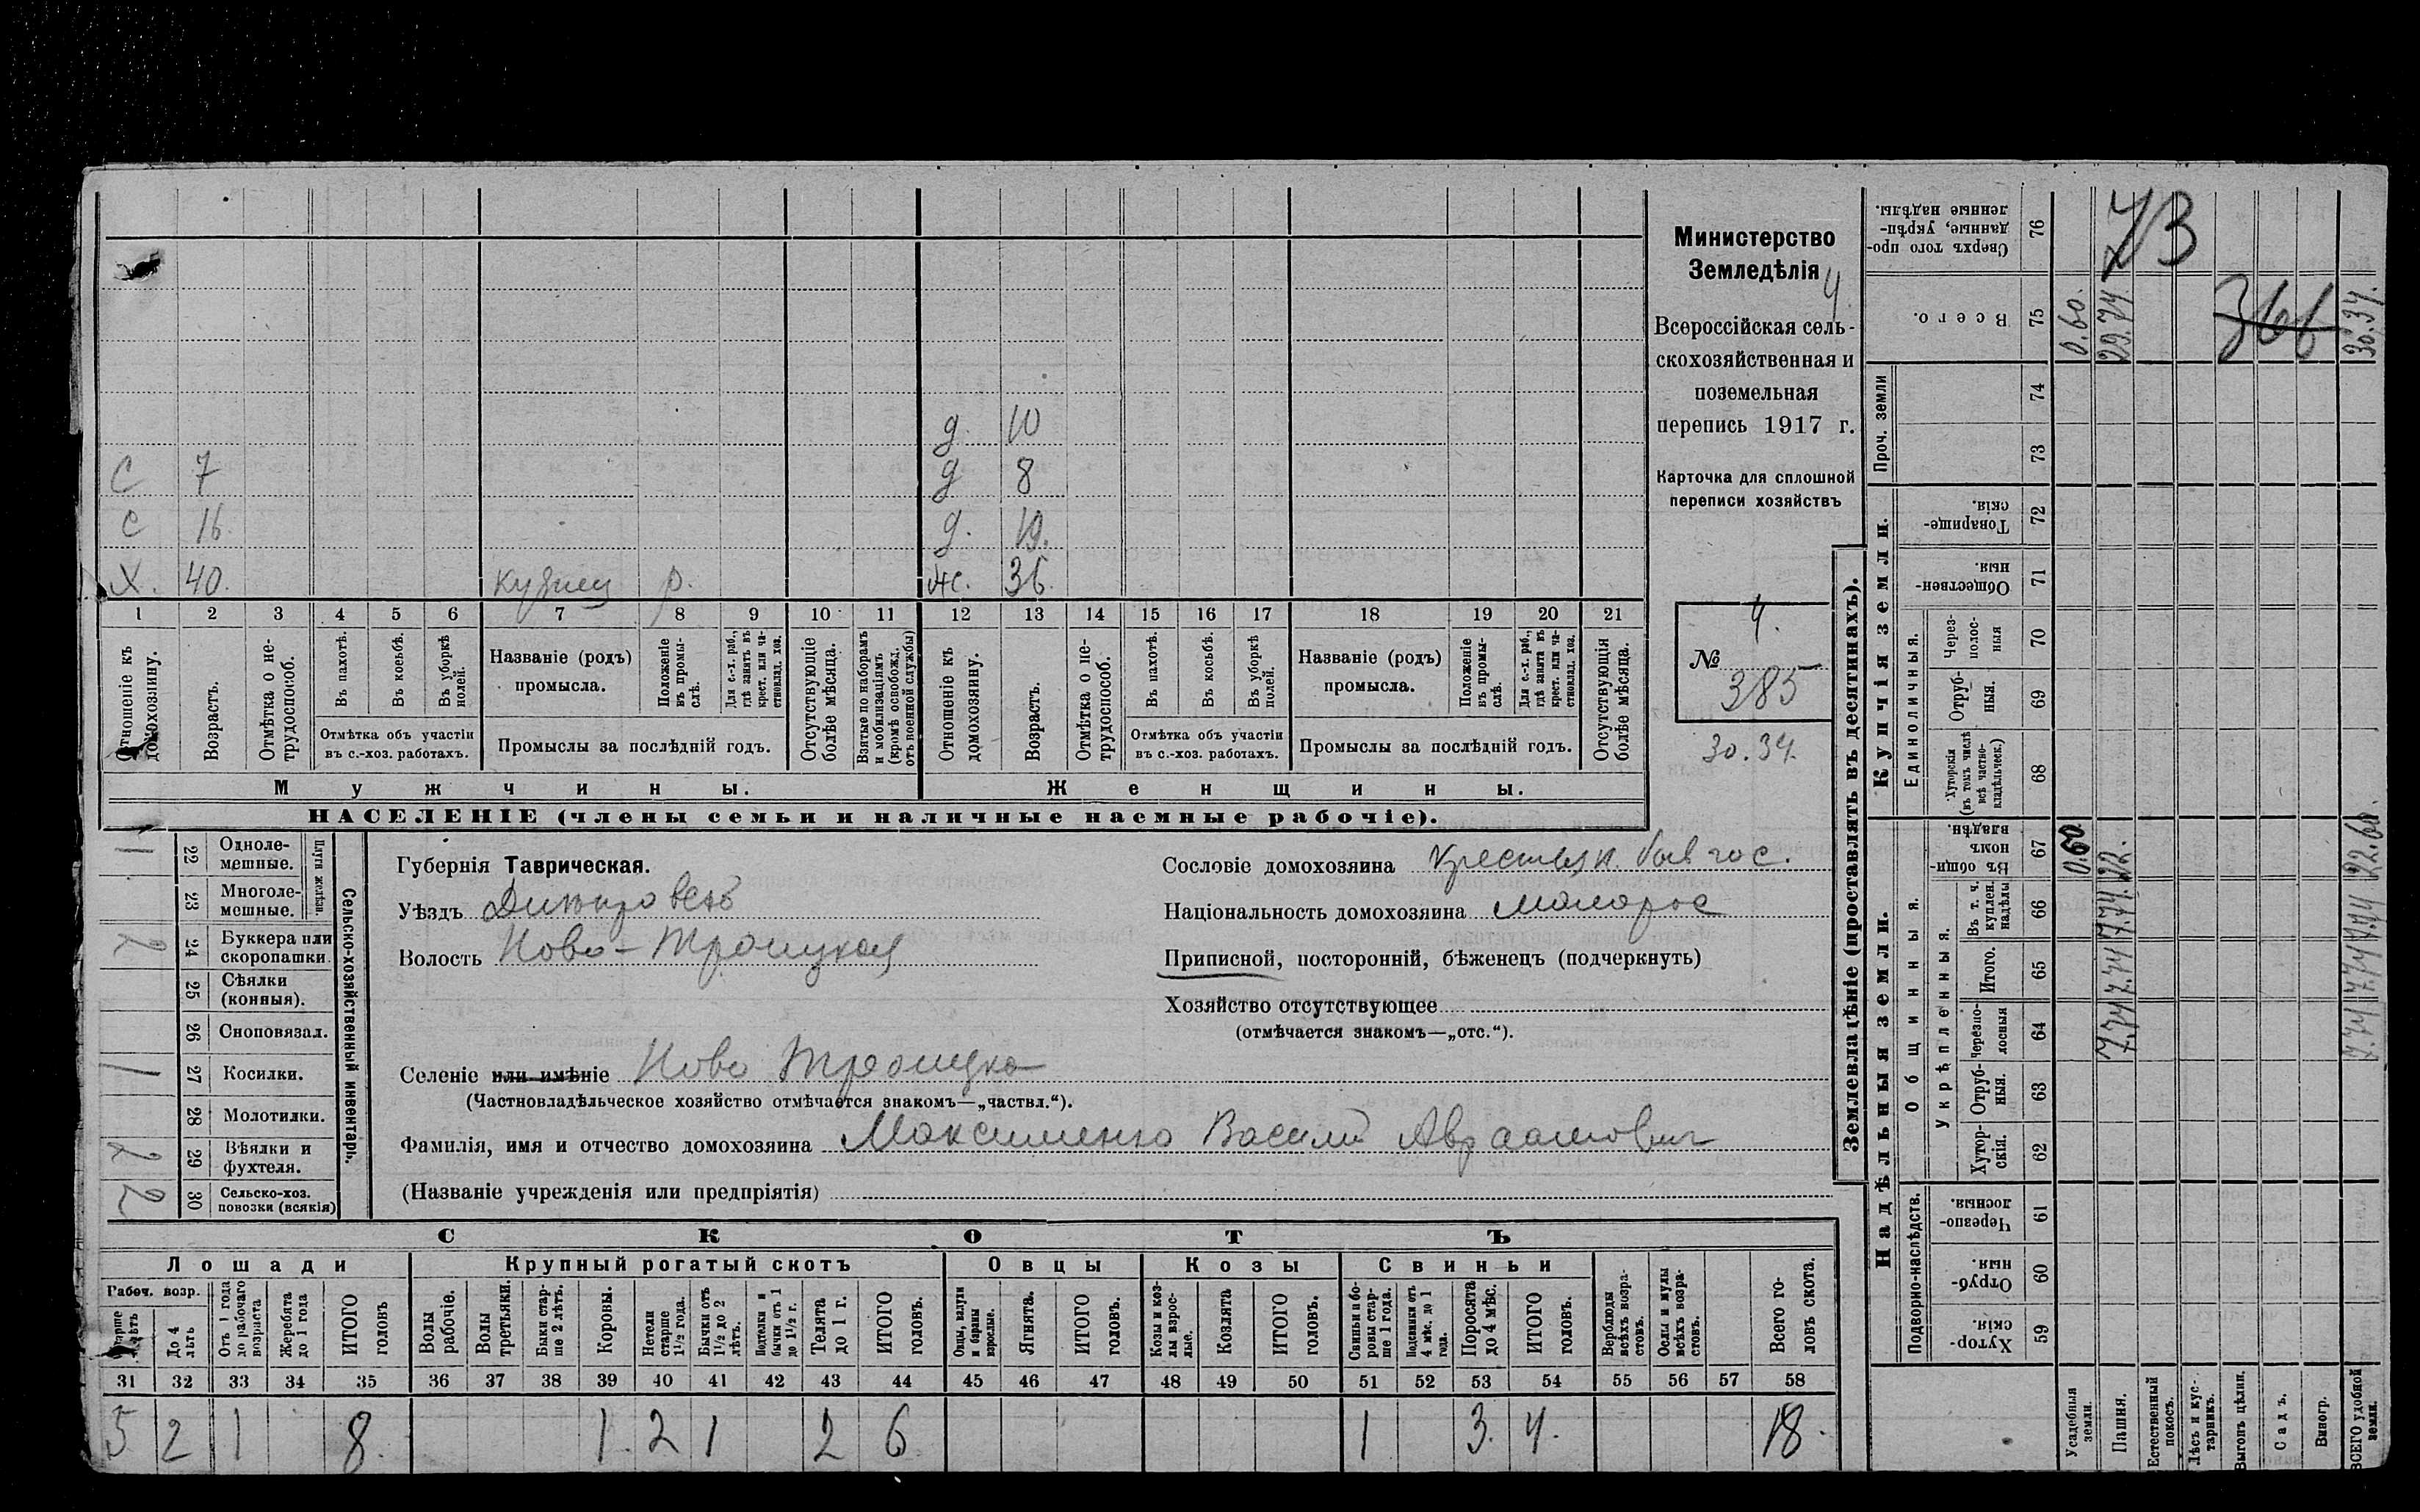 д. 10
С 7 д 8
С 16 д. 19.
Х. 40. кузнец р. ж. 36
1 2 3 4 5 6 7 8 9 10 11 12 13 14 15 16 17 18 19 20 21
Отношеніе къ домохозяину.
Возрастъ.
Отмѣтка о не-
трудоспособ.
Въ пахотѣ.
Въ косьбѣ.
Въ уборкѣ
полей.
Отмѣтка объ участіи
въ с.-хоз. работахъ.
Названіе (родъ)
промысла.
Положеніе
въ промы-
слѣ.
Для с.-х. раб.,
гдѣ занятъ въ
крест. или ча-
стновлад. хоз.
Промыслы за послѣдній годъ.
Отсутствующіе
болѣе мѣсяца.
Взятые по наборамъ
и мобилизаціямъ
(кромѣ освобожд.
отъ военной службы)
Отношеніе къ
домохозяину.
Возрастъ.
Отмѣтка о не-
трудоспособ.
Въ пахотѣ.
Въ косьбѣ.
Въ уборкѣ
полей.
Отмѣтка объ участіи
въ с.-хоз. работахъ.
Названіе (родъ)
промысла.
Положеніе
въ промы-
слѣ.
Для с.-х. раб.,
гдѣ занята въ
крест. или ча-
стновлад. хоз.
Промыслы за послѣдній годъ.
Отсутствующія
болѣе мѣсяца.
Мужчины.
Женщины.
НАСЕЛЕНІЕ (члены семьи и наличные наемные рабочіе).
Министерство
Земледѣлія
4
Всероссійская сель-
скохозяйственная и
поземельная
перепись 1917 г.
Карточка для сплошной
переписи хозяйствъ
4.
№
385
30.34.
1 22 Одноле-
мешные.
23 Многоле-
мешные.
Плуги желѣзн.
2 24 Буккера или
скоропашки.
25 Сѣялки
(конныя).
26 Сноповязал.
1 27 Косилки.
28 Молотилки.
2 29 Вѣялки и
фухтеля.
2 30 Сельско-хоз.
повозки (всякія)
Сельско-хозяйственный инвентарь.
Губернія Таврическая.
Уѣздъ Днепровскъ
Волость Ново-Троицкая
Селеніе или имѣніе Ново Троицко
(Частновладѣльческое хозяйство отмѣчается знакомъ—„частвл.“).
Фамилія, имя и отчество домохозяина Максименко Василий Авраамович
(Названіе учрежденія или предпріятія)
Сословіе домохозяина Крестьян. быв гос.
Національность домохозяина малорос
Приписной, посторонній, бѣженецъ (подчеркнуть)
Хозяйство отсутствующее
(отмѣчается знакомъ—„отс.“).
СКОТЪ
Лошади
Крупный рогатый скотъ
Овцы
Козы
Свиньи
Рабоч. возр.
До 4
лѣтъ
Отъ 1 года
до рабочаго
возраста
Жеребята
до 1 года
ИТОГО
головъ
Волы
рабочіе.
Волы
третьяки.
Быки стар-
ше 2 лѣтъ.
Коровы.
Нетели
старше
1½ года.
Бычки отъ
1½ до 2
лѣтъ.
Подтелки и
бычки отъ 1
до 1½ г.
Телята
до 1 г.
ИТОГО
головъ.
Овцы, валухи
и бараны
взрослые.
Ягнята.
ИТОГО
головъ.
Козы и коз-
лы взрос-
лые.
Козлята
ИТОГО
головъ.
Свиньи и бо-
ровы стар-
ше 1 года.
Подсвинки отъ
4 мѣс. до 1
года.
Поросята
до 4 мѣс.
ИТОГО
головъ.
Верблюды
всѣхъ возра-
стовъ.
Ослы и мулы
всѣхъ возра-
стовъ.
Всего го-
ловъ скота.
31 32 33 34 35 36 37 38 39 40 41 42 43 44 45 46 47 48 49 50 51 52 53 54 55 56 57 58
5 2 1 8. 1. 2 1 2 6 1 3. 4. 18.
Землевладѣніе (проставлять въ десятинахъ).
Надѣльныя земли.
Купчія земли.
Проч. земли
Сверхъ того про-
данные, укрѣп-
ленные надѣлы.
76
73
Всего.
75 0.60. 29.74 366 30.34.
74
73
Товарище-
скія.
72
Обществен-
ныя.
71
Единоличныя.
Через-
полос-
ныя
70
Отруб-
ныя.
69
Хуторскія
(въ томъ числѣ
всѣ частно-
владѣльческ.)
68
Общинныя.
Въ общин-
номъ
владѣн.
67 0.60 22. 22.60.
Укрѣпленныя.
Въ т. ч.
куплен.
надѣлы
66 7.74 7.74
Итого.
65 7.74 7.74
Черезпо-
лосныя
64 7.74 7.74
Отруб-
ныя.
63
Хутор-
скія.
62
Подворно-наслѣдств.
Черезпо-
лосныя.
61
Отруб-
ныя.
60
Хутор-
скія.
59
Усадебныя
земли.
Пашня.
Естественный
покосъ.
Лѣсъ и кус-
тарникъ.
Выгонъ цѣлин.
Садъ.
Виногр.
ВСЕГО удобной
земли.